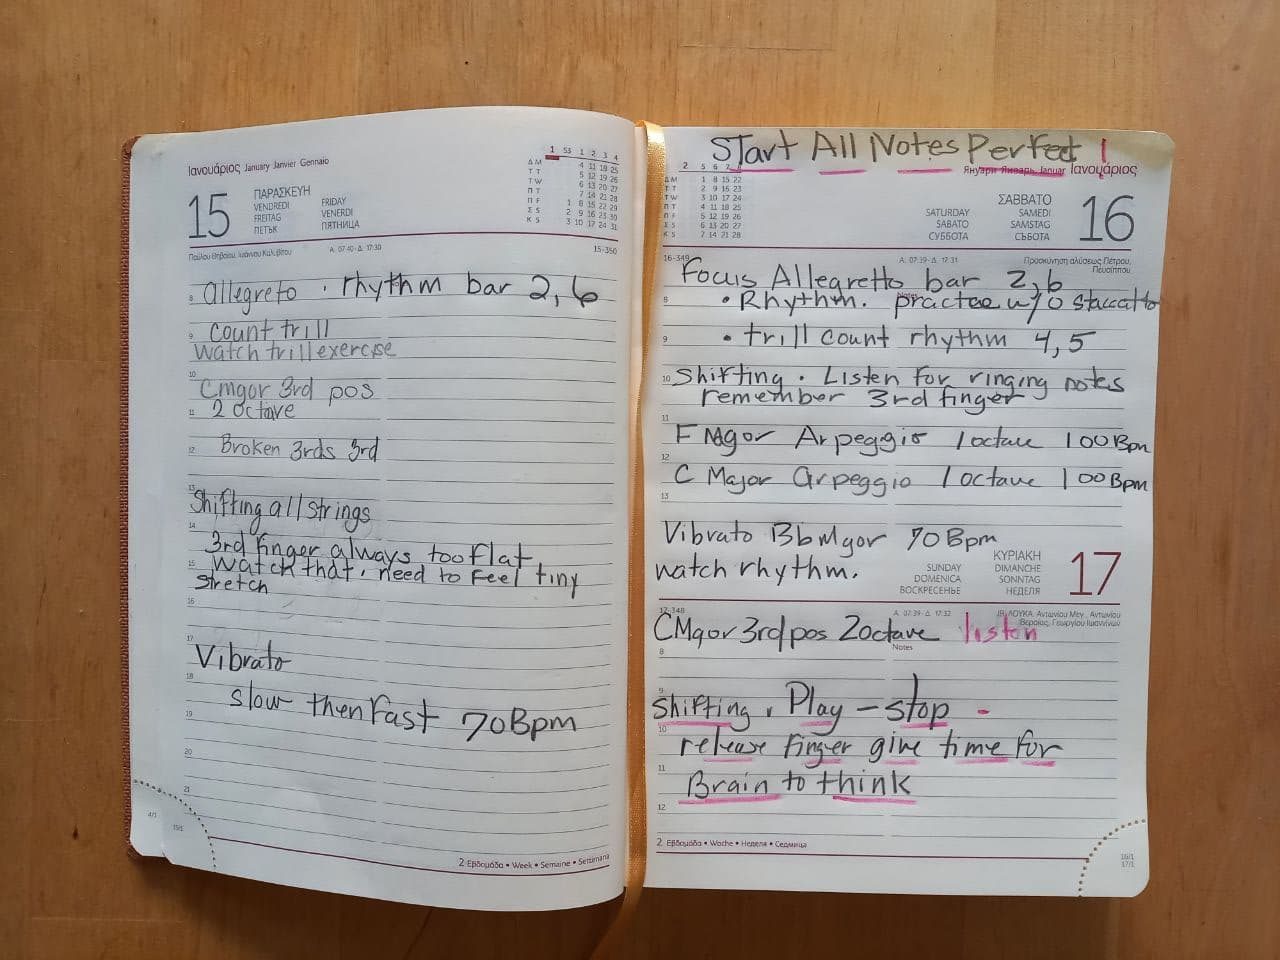 Ιανουάριος January Janvier Gennaio
15
ΠΑΡΑΣΚΕΥΗ
VENDREDI FRIDAY
FREITAG VENERDI
ПЕТЪК ПЯТНИЦА
1 53 1 2 3 4
Δ M 4 11 18 25
T T 5 12 19 26
T W 6 13 20 27
Π T 7 14 21 28
Π F 1 8 15 22 29
Σ S 2 9 16 23 30
K S 3 10 17 24 31
Α. 07:40 - Δ. 17:30
15-350
8 allegreto · rhythm bar 2, 6
9 count trill
watch trill exercise
10
Cmgor 3rd pos
11 2 octave
12 Broken 3rds 3rd
13
Shifting all strings
14
3rd finger always too flat
15 watch that. need to feel tiny
stretch
16
17
Vibrato
18
slow then Fast 70Bpm
19
20
21
4/1 15/1
2 Εβδομάδα • Week • Semaine • Settimana
START All Notes Perfect !
Януари Январь Januar Ιανουάριος
2 5 6 7 8
Δ M 1 8 15 22
T T 2 9 16 23
T W 3 10 17 24
Π T 4 11 18 25
Π F 5 12 19 26
Σ S 6 13 20 27
K S 7 14 21 28
ΣΑΒΒΑΤΟ
SATURDAY SAMEDI
SABATO SAMSTAG
СУББОТА СЪБОТА
16
16-349
Α. 07:39 - Δ. 17:31
Προσκύνηση αλύσεως Πέτρου,
Πευσίππου
Focus Allegretto bar 2, 6
8 • Rhythm. practee w/o staccatto
9 • trill count rhythm 4,5
10 Shifting · Listen for ringing notes
remember 3rd finger
11
F Magor Arpeggio 1 octave 100 Bpm
12
C Major arpeggio 1 octave 100 Bpm
13
Vibrato Bb Mgor 70 Bpm
watch rhythm.
ΚΥΡΙΑΚΗ
SUNDAY DIMANCHE
DOMENICA SONNTAG
ВОСКРЕСЕНЬЕ НЕДЕЛЯ
17
17-348
Α. 07:39 - Δ. 17:32
ΛΟΥΚΑ, Αντωνίου Μεγ., Αντωνίου
Βεροίας, Γεωργίου Ιωαννίνων
CMgor 3rd pos 2octave listen
Notes
8
9
Shifting, Play – stop -
10 release finger give time for
11
Brain to think
12
2 Εβδομάδα • Woche • Неделя • Седмица
16/1
17/1